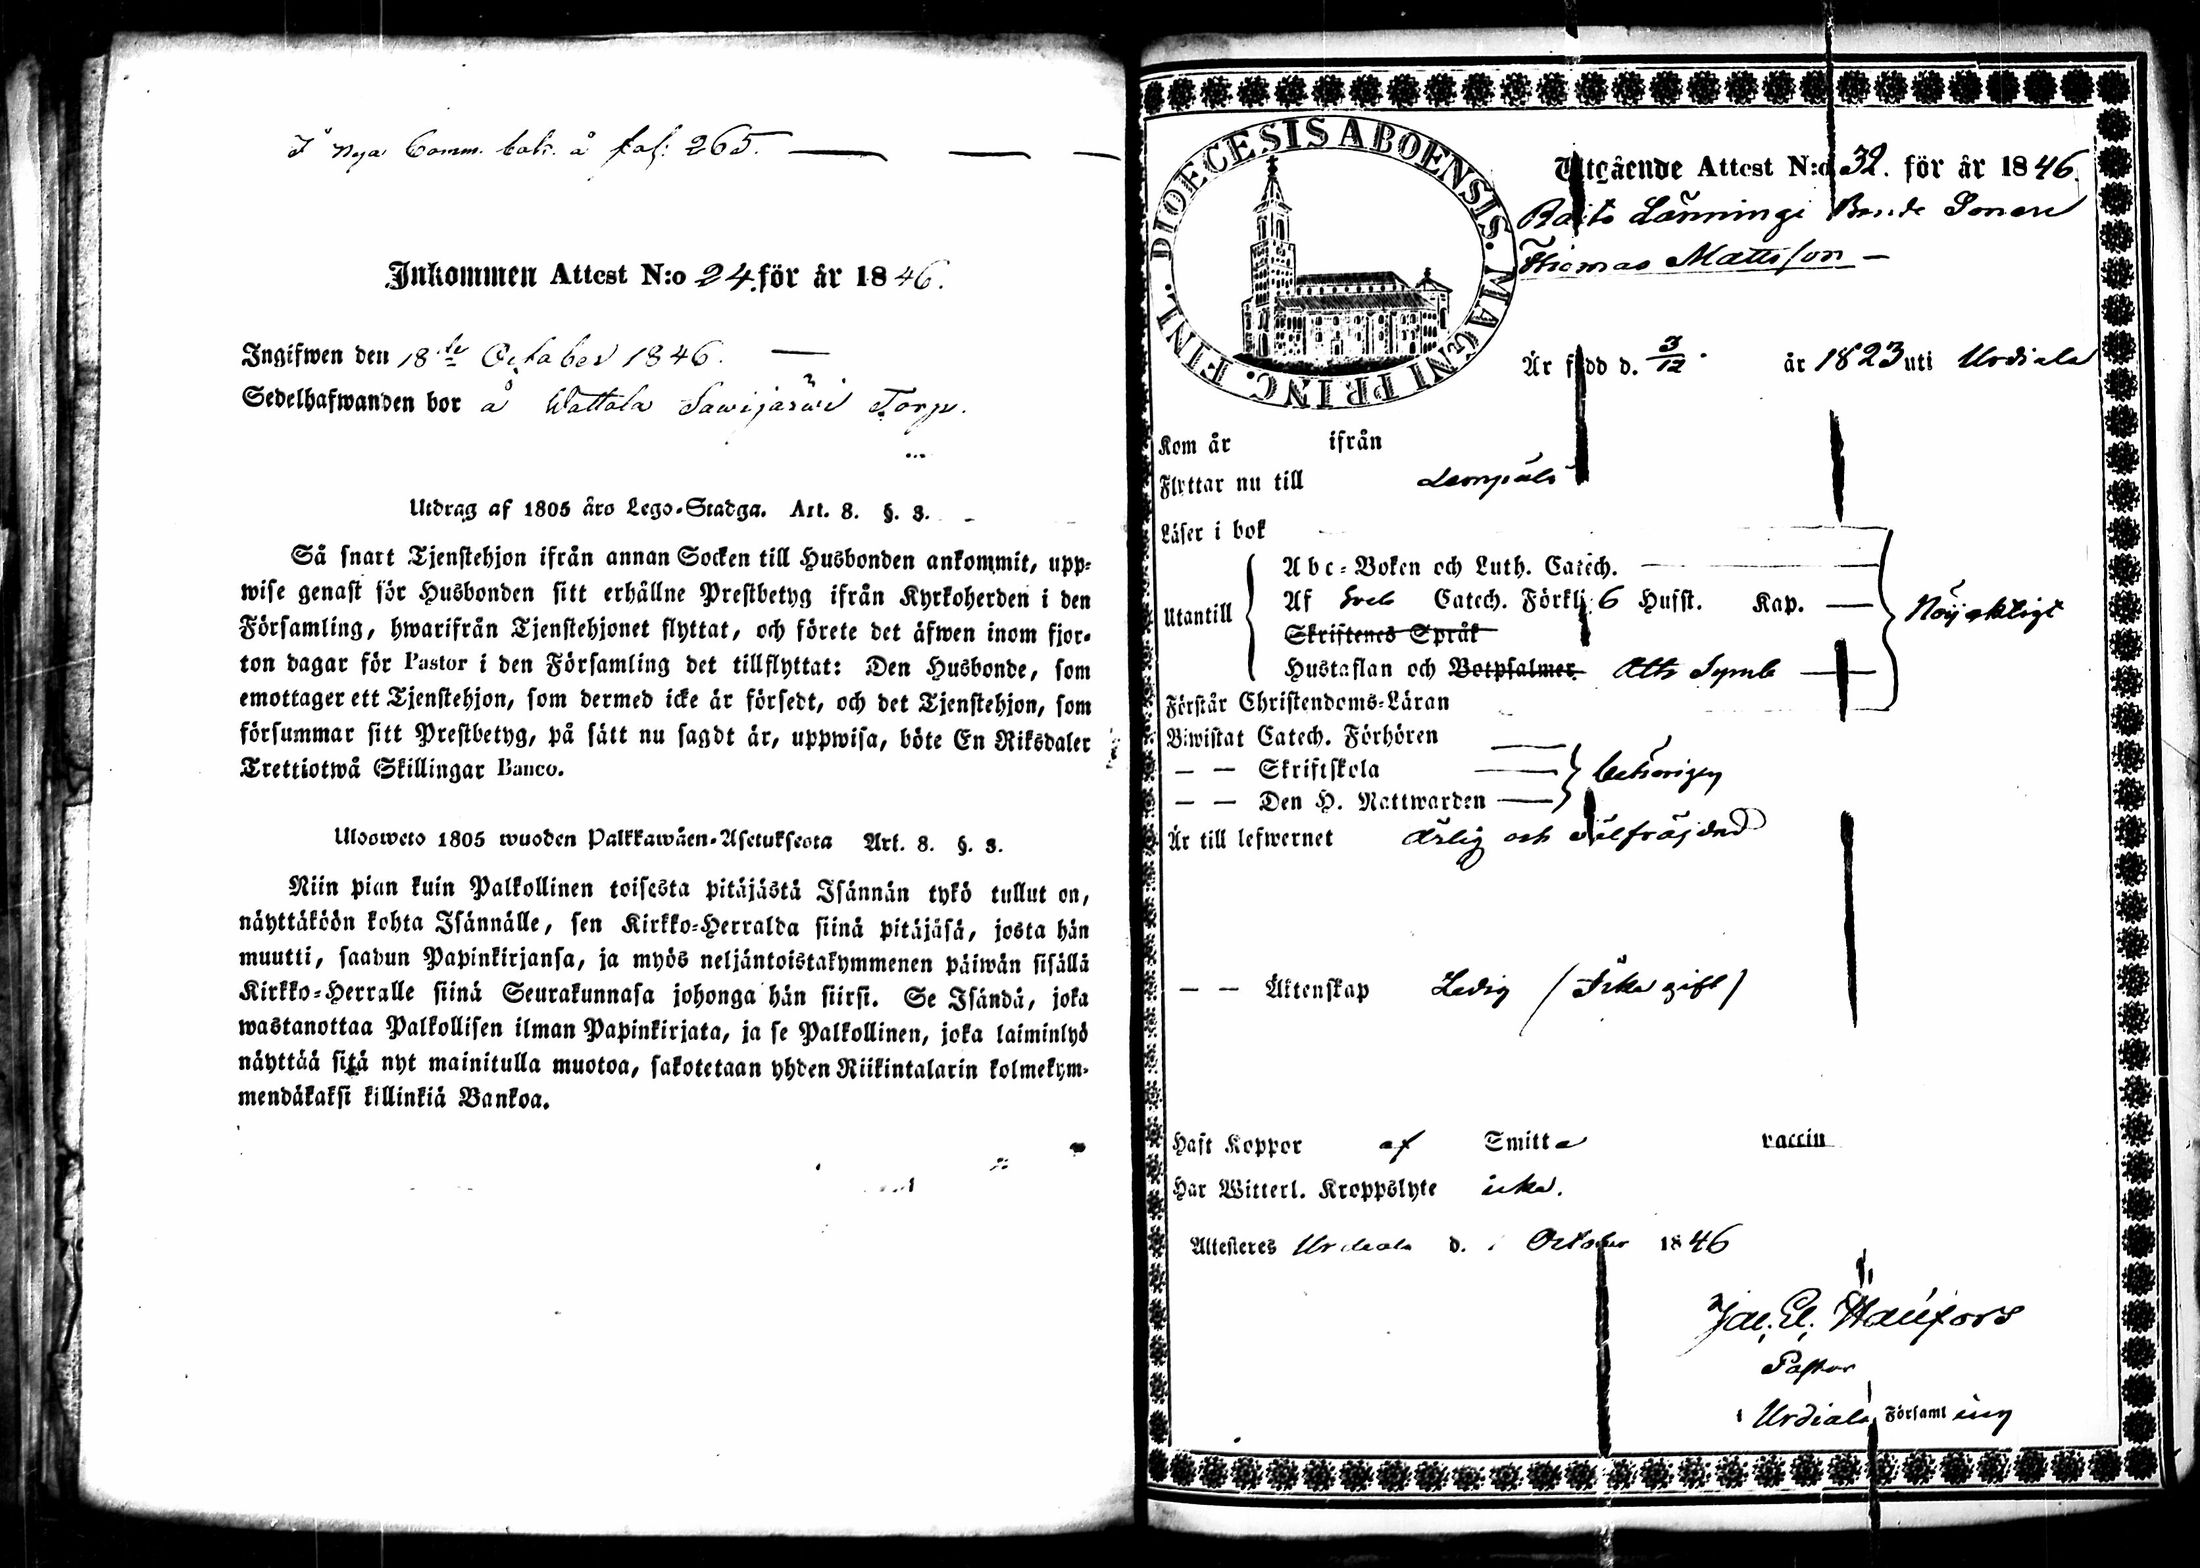 I nya Comm. bok. å fol: 265.
Inkommen Attest N:o 24. för år 1846.
Ingifwen den 18de October 1846.
Sedelhafwanden bor å Wattola Sawijärwi Torp.
Utdrag af 1805 års Lego-Stadga. Art. 8. §. 3.
Så snart Tjenstehjon ifrån annan Socken till Husbonden ankommit, upp-
wise genast för Husbonden sitt erhållne Prestbetyg ifrån Kyrkoherden i den
Församling, hwarifrån Tjenstehjonet flyttat, och förete det äfwen inom fjor-
ton dagar för Pastor i den Församling det tillflyttat: Den Husbonde, som
emottager ett Tjenstehjon, som dermed icke är försedt, och det Tjenstehjon, som
försummar sitt Prestbetyg, på sätt nu sagdt är, uppwisa, böte En Riksdaler
Trettiotwå Skillingar Banco.
Ulosweto 1805 wuoden Palkkawäen-Asetuksesta Art. 8. §. 3.
Niin pian kuin Palkollinen toisesta pitäjästä Isännän tykö tullut on,
näyttäköön kohta Isännälle, sen Kirkko-Herralda siinä pitäjäsä, josta hän
muutti, saadun Papinkirjansa, ja myös neljäntoistakymmenen päiwän sisällä
Kirkko-Herralle siinä Seurakunnasa johonga hän siirsi. Se Isändä, joka
wastanottaa Palkollisen ilman Papinkirjata, ja se Palkollinen, joka laiminlyö
näyttää sitä nyt mainitulla muotoa, sakotetaan yhden Riikintalarin kolmekym-
mendäkaksi killinkiä Bankoa.
DIOECESIS ABOENSIS. MAGNI PRINC. FINL.
Utgående Attest N:o 32. för år 1846.
Lönningi Bonde Sonen
Thomas Mattsson
Är född d. 3/12. år 1823 uti Urdiala
Kom år ifrån
Flyttar nu till Lempälä
Läser i bok
Utantill
Abc-Boken och Luth. Catech.
Af Sveb Catech. Förkl. 6 Husst. Kap.
Skriftenes Språk
Hustaflan och Botpsalmer. Ath Symb
Nöjaktigt
Förstår Christendoms-Läran
Biwistat Catech. Förhören
— — Skriftskola
— — Den H. Nattwarden
behörigen
Är till lefwernet ärlig och wälfräjdad
— — Äktenskap Ledig (Icke gift)
Haft Koppor af Smitta vaccin
Har Witterl. Kroppslyte icke.
Attesteres Urdiala d. October 1846
Jac. El.
Pastor
i Urdiala Församling